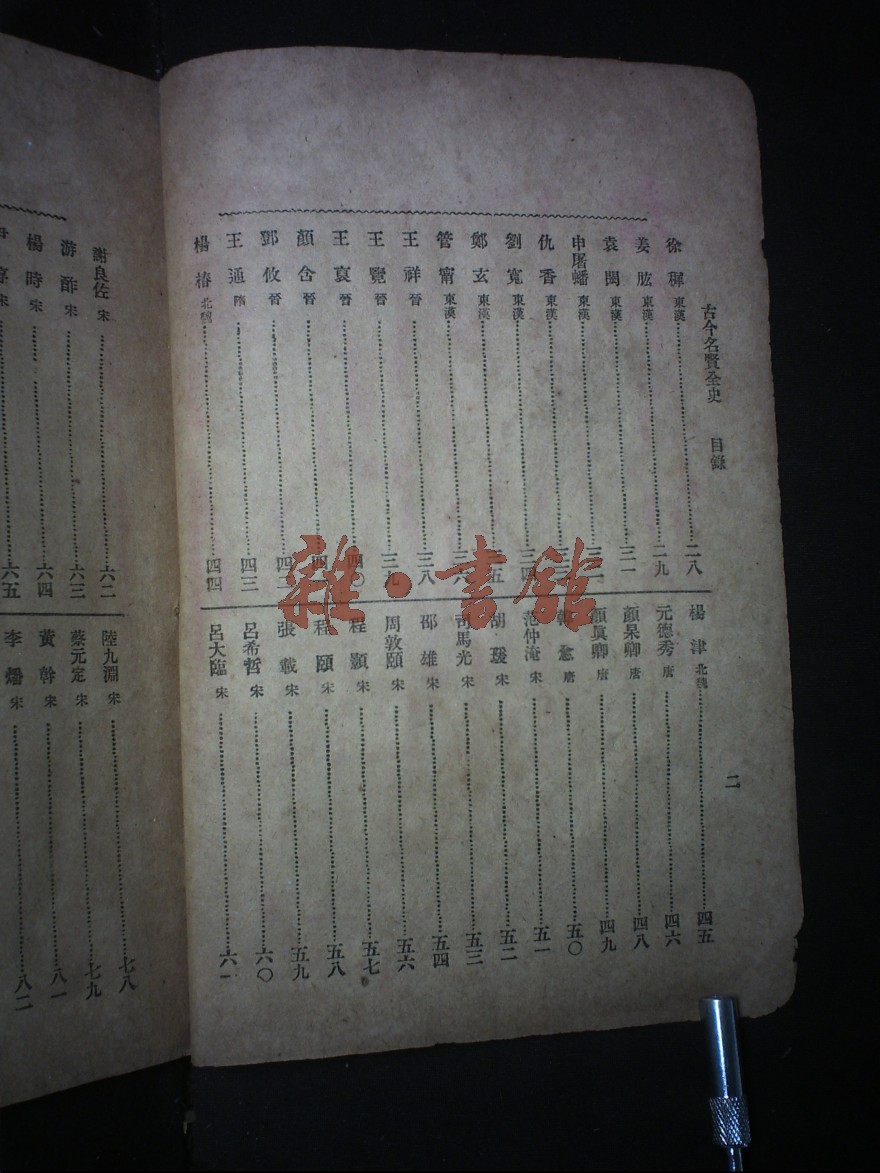 古今名賢全史 目錄
二
徐穉 東漢 二八
姜肱 東漢 二九
袁閎 東漢 三一
申屠蟠 東漢
仇香 東漢 三三
劉寬 東漢 三四
鄭玄 東漢 五
管甯 東漢 三六
王祥 晉 三八
王覽 晉 三九
王裒 晉 四〇
顏含 晉 四
鄧攸 晉 四二
王通 隋 四三
楊椿 北魏 四四
楊津 北魏 四五
元德秀 唐 四六
顏杲卿 唐 四八
顏眞卿 唐 四九
愈 唐 五〇
范仲淹 宋 五一
胡瑗 宋 五二
司馬光 宋 五三
邵雄 宋 五四
周敦頤 宋 五六
程顥 宋 五七
程頤 宋 五八
張載 宋 五九
呂希哲 宋 六〇
呂大臨 宋 六一
謝良佐 宋 六二
游酢 宋 六三
楊時 宋 六四
宋 六五
陸九淵 宋 七八
蔡元定 宋 七九
黃幹 宋 八一
李燔 宋 八二
雜·書館